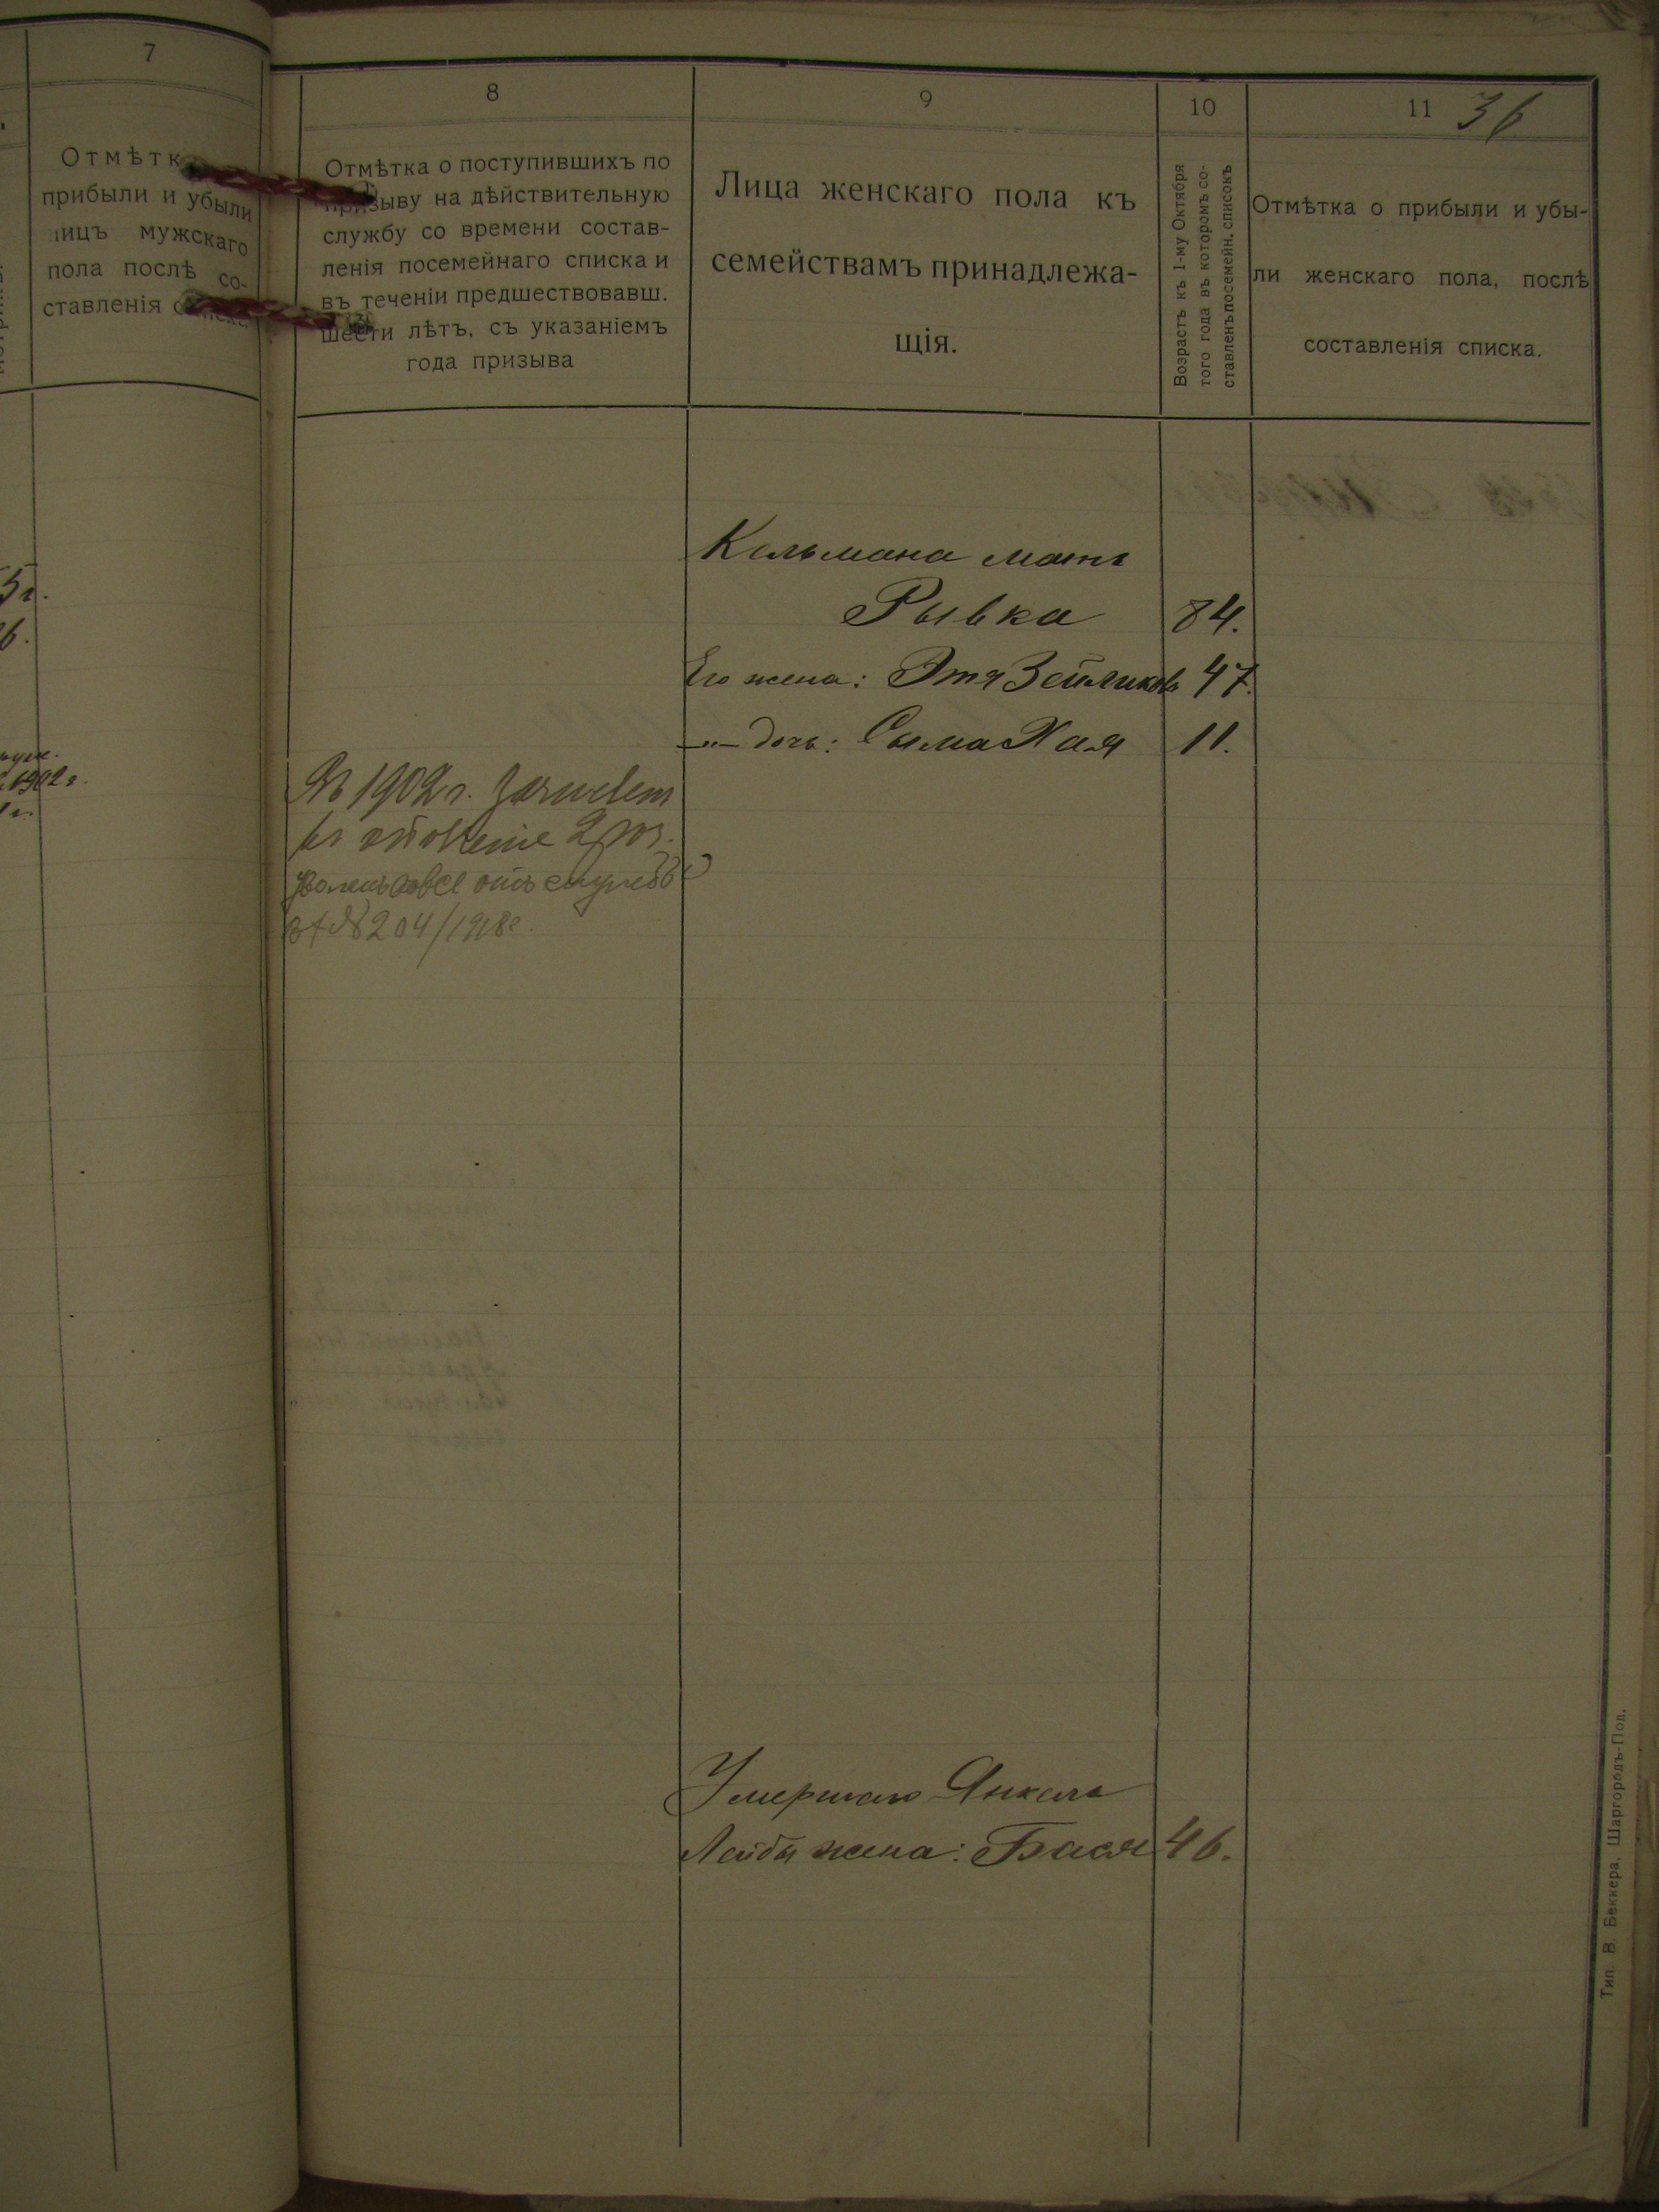 7
Отмѣтк
прибыли и убыли
лицъ мужскаго
пола послѣ со-
ставленія
5г.
6.
1902г.
8
Отмѣтка о поступившихъ по
призыву на дѣйствительную
службу со времени состав-
ленія посемейнаго списка и
въ теченіи предшествовавш.
шести лѣтъ, съ указаніемъ
года призыва
9
Лица женскаго пола къ
семействамъ принадлежа-
щія.
10
Возрастъ къ 1-му Октября
того года въ которомъ со-
ставленъ посемейн. списокъ
11
36
Отмѣтка о прибыли и убы-
ли женскаго пола, послѣ
составленія списка.
Кельмана мать
Рывка 84.
Его жена: Этя Зейликова 47.
—"— дочь: Сыма Хая 11.
Въ 1902 г. зачисленъ
въ ополченіе 2 раз.
вовсе отъ службы
№ 204/1918г.
Умершаго Янкеля
Лейбы жена: Бася 46.
Тип. В. Беккера, Шаргородъ-Под.